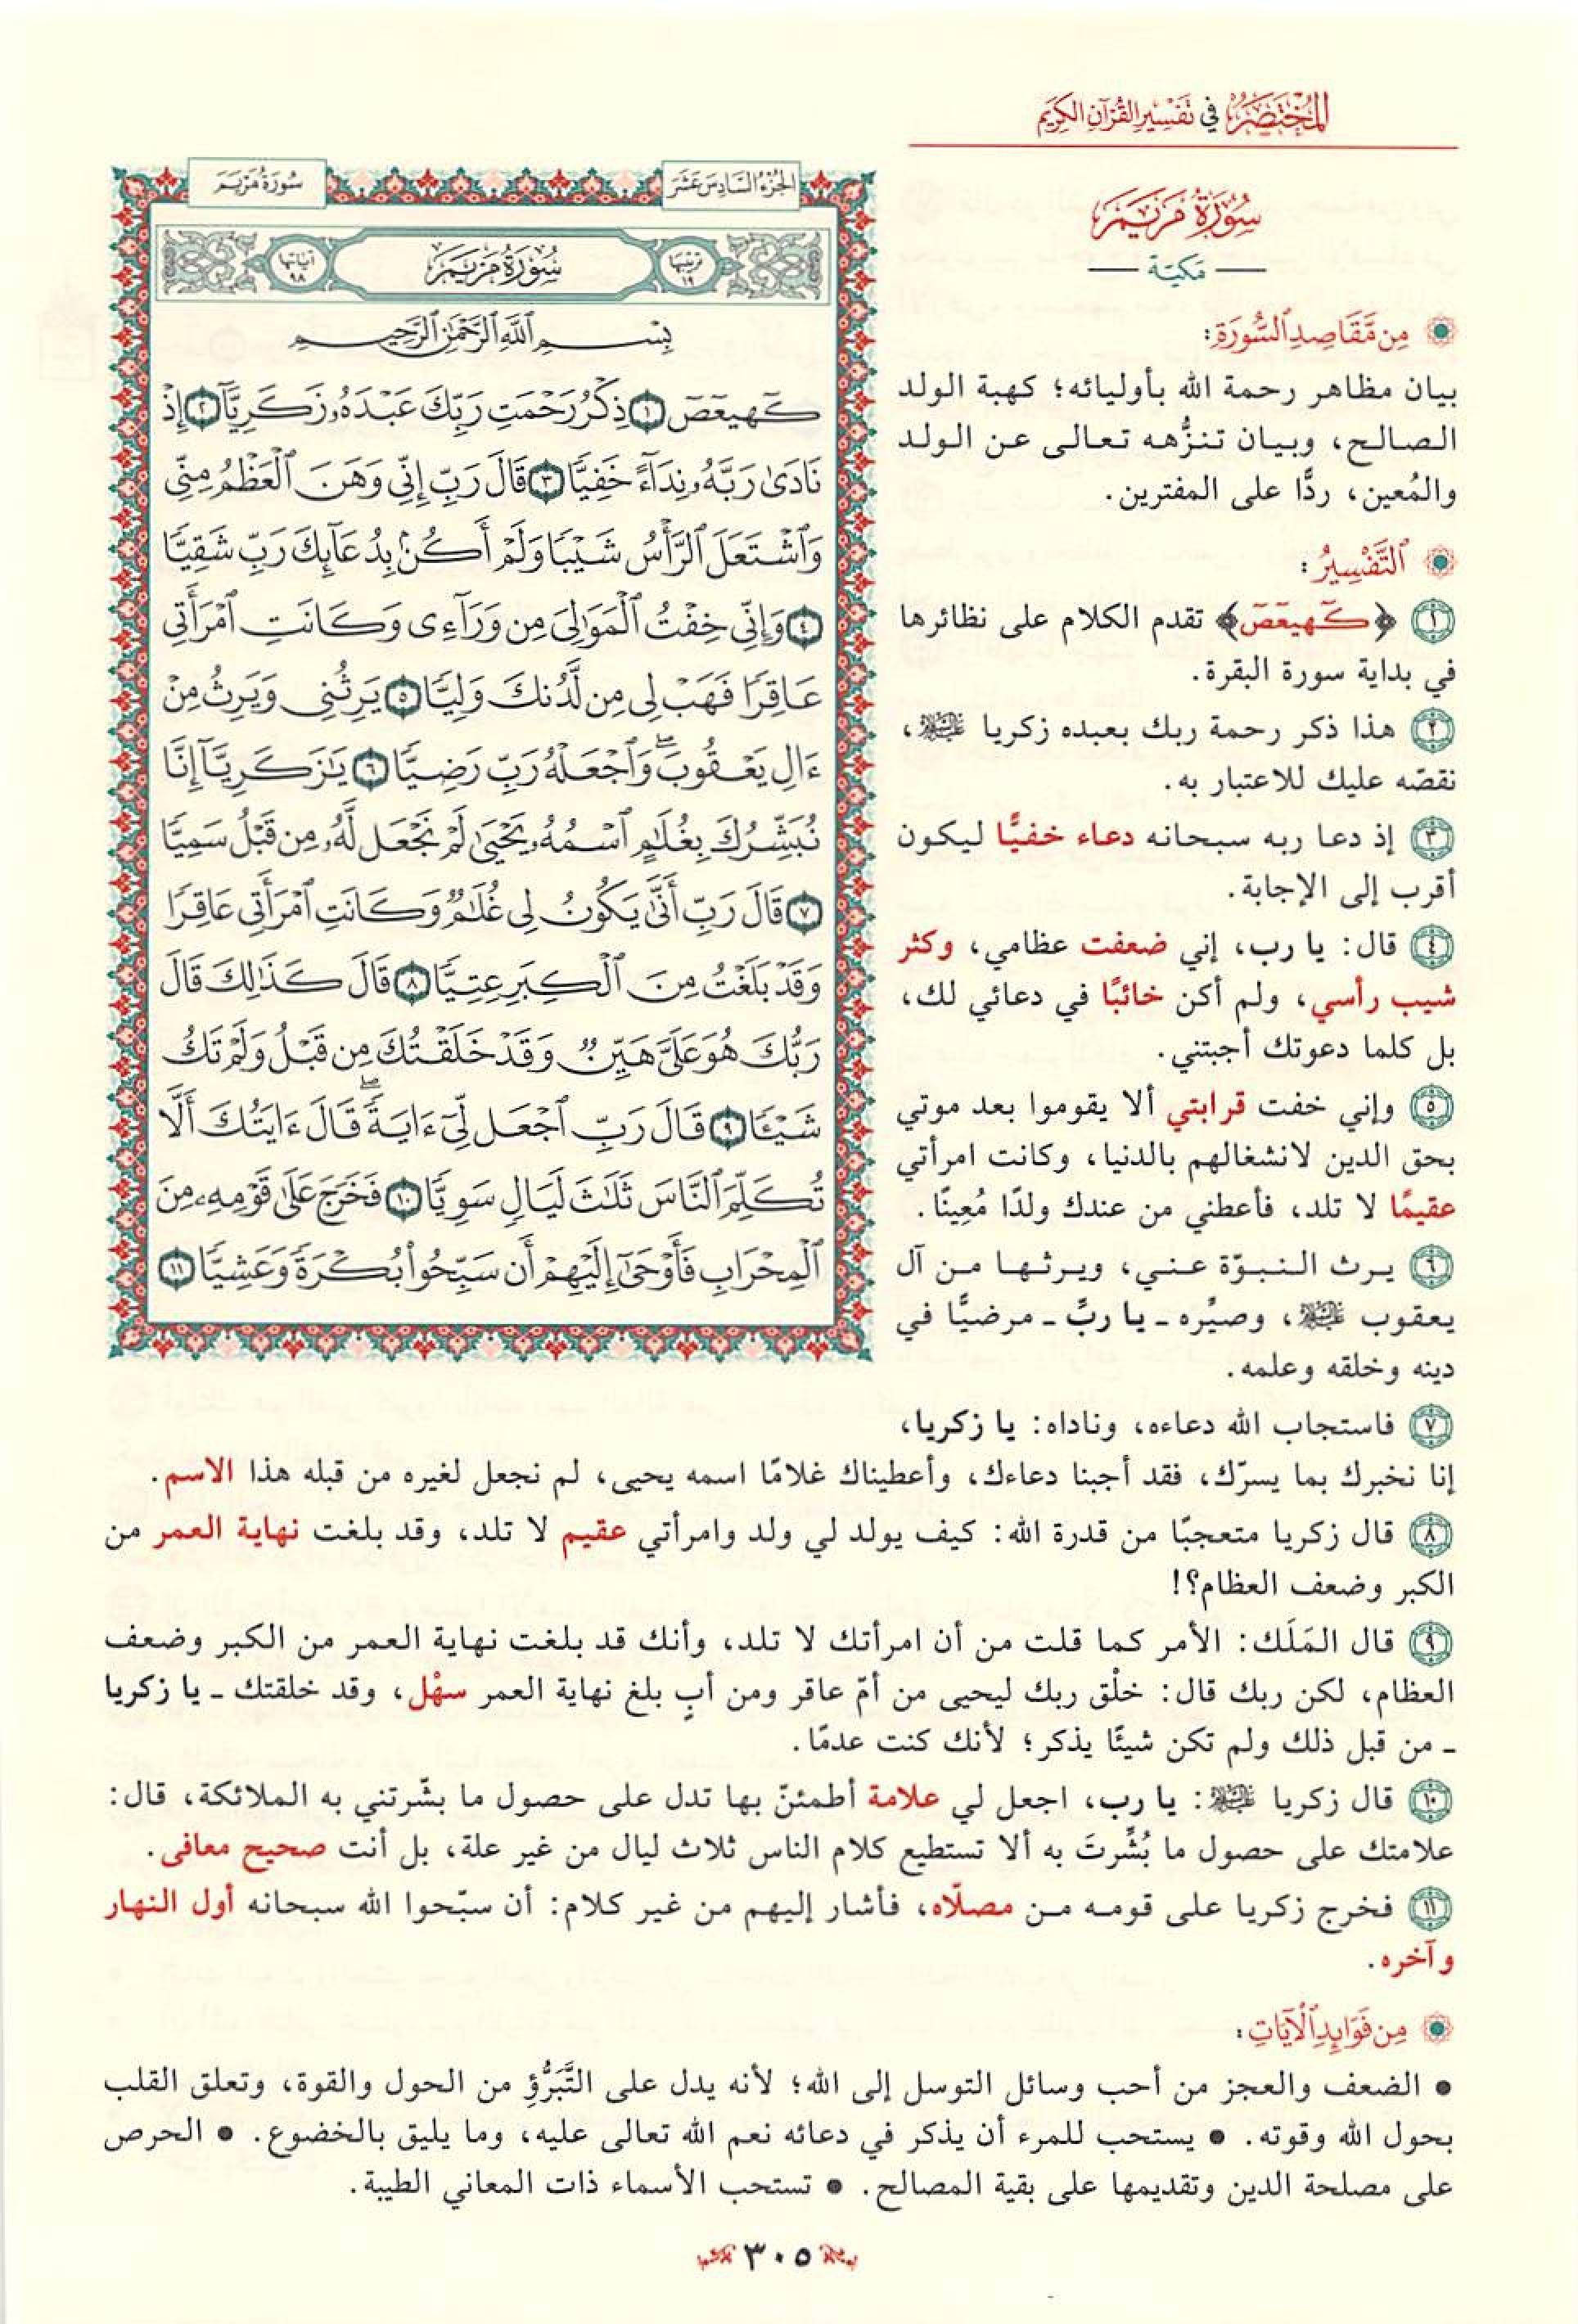 المُخْتَصَرُ فِي تَفْسِيرِ القُرْآنِ الكَرِيمِ
سُورَةُ مَرْيَمَ
الجُزْءُ السَّادِسَ عَشَرَ
سُورَةُ مَرْيَمَ
ترتيبها ١٩
سُورَةُ مَرْيَمَ
آياتها ٩٨
بِسْمِ ٱللَّهِ ٱلرَّحْمَٰنِ ٱلرَّحِيمِ
كٓهيعٓصٓ ١ ذِكْرُ رَحْمَتِ رَبِّكَ عَبْدَهُۥ زَكَرِيَّآ ٢ إِذْ
نَادَىٰ رَبَّهُۥ نِدَآءً خَفِيًّا ٣ قَالَ رَبِّ إِنِّى وَهَنَ ٱلْعَظْمُ مِنِّى
وَٱشْتَعَلَ ٱلرَّأْسُ شَيْبًا وَلَمْ أَكُنۢ بِدُعَآئِكَ رَبِّ شَقِيًّا
٤ وَإِنِّى خِفْتُ ٱلْمَوَٰلِىَ مِن وَرَآءِى وَكَانَتِ ٱمْرَأَتِى
عَاقِرًا فَهَبْ لِى مِن لَّدُنكَ وَلِيًّا ٥ يَرِثُنِى وَيَرِثُ مِنْ
ءَالِ يَعْقُوبَۖ وَٱجْعَلْهُ رَبِّ رَضِيًّا ٦ يَٰزَكَرِيَّآ إِنَّا
نُبَشِّرُكَ بِغُلَٰمٍ ٱسْمُهُۥ يَحْيَىٰ لَمْ نَجْعَل لَّهُۥ مِن قَبْلُ سَمِيًّا
٧ قَالَ رَبِّ أَنَّىٰ يَكُونُ لِى غُلَٰمٌ وَكَانَتِ ٱمْرَأَتِى عَاقِرًا
وَقَدْ بَلَغْتُ مِنَ ٱلْكِبَرِ عِتِيًّا ٨ قَالَ كَذَٰلِكَ قَالَ
رَبُّكَ هُوَ عَلَىَّ هَيِّنٌ وَقَدْ خَلَقْتُكَ مِن قَبْلُ وَلَمْ تَكُ
شَيْـًٔا ٩ قَالَ رَبِّ ٱجْعَل لِّىٓ ءَايَةًۖ قَالَ ءَايَتُكَ أَلَّا
تُكَلِّمَ ٱلنَّاسَ ثَلَٰثَ لَيَالٍ سَوِيًّا ١٠ فَخَرَجَ عَلَىٰ قَوْمِهِۦ مِنَ
ٱلْمِحْرَابِ فَأَوْحَىٰٓ إِلَيْهِمْ أَن سَبِّحُوا۟ بُكْرَةً وَعَشِيًّا ١١
مَكيّة
مِن مَّقَاصِدِ ٱلسُّورَةِ:
بيان مظاهر رحمة الله بأوليائه؛ كهبة الولد
الصالح، وبيان تنزُّهه تعالى عن الولد
والمُعين، ردًّا على المفترين.
ٱلتَّفْسِيرُ:
١ ﴿كٓهيعٓصٓ﴾ تقدم الكلام على نظائرها
في بداية سورة البقرة.
٢ هذا ذكر رحمة ربك بعبده زكريا عليه السلام،
نقصّه عليك للاعتبار به.
٣ إذ دعا ربه سبحانه دعاء خفيًّا ليكون
أقرب إلى الإجابة.
٤ قال: يا رب، إني ضعفت عظامي، وكثر
شيب رأسي، ولم أكن خائبًا في دعائي لك،
بل كلما دعوتك أجبتني.
٥ وإني خفت قرابتي ألا يقوموا بعد موتي
بحق الدين لانشغالهم بالدنيا، وكانت امرأتي
عقيمًا لا تلد، فأعطني من عندك ولدًا مُعِينًا.
٦ يرث النبوّة عني، ويرثها من آل
يعقوب عليه السلام، وصيِّره ـ يا ربِّ ـ مرضيًّا في
دينه وخلقه وعلمه.
٧ فاستجاب الله دعاءه، وناداه: يا زكريا،
إنا نخبرك بما يسرّك، فقد أجبنا دعاءك، وأعطيناك غلامًا اسمه يحيى، لم نجعل لغيره من قبله هذا الاسم.
٨ قال زكريا متعجبًا من قدرة الله: كيف يولد لي ولد وامرأتي عقيم لا تلد، وقد بلغت نهاية العمر من
الكبر وضعف العظام؟!
٩ قال المَلَك: الأمر كما قلت من أن امرأتك لا تلد، وأنك قد بلغت نهاية العمر من الكبر وضعف
العظام، لكن ربك قال: خلْق ربك ليحيى من أمّ عاقر ومن أبٍ بلغ نهاية العمر سهْل، وقد خلقتك ـ يا زكريا
ـ من قبل ذلك ولم تكن شيئًا يذكر؛ لأنك كنت عدمًا.
١٠ قال زكريا عليه السلام: يا رب، اجعل لي علامة أطمئنّ بها تدل على حصول ما بشّرتني به الملائكة، قال:
علامتك على حصول ما بُشِّرتَ به ألا تستطيع كلام الناس ثلاث ليال من غير علة، بل أنت صحيح معافى.
١١ فخرج زكريا على قومه من مصلّاه، فأشار إليهم من غير كلام: أن سبّحوا الله سبحانه أول النهار
وآخره.
مِن فَوَائِدِ ٱلْآيَاتِ:
• الضعف والعجز من أحب وسائل التوسل إلى الله؛ لأنه يدل على التَّبَرُّؤِ من الحول والقوة، وتعلق القلب
بحول الله وقوته. • يستحب للمرء أن يذكر في دعائه نعم الله تعالى عليه، وما يليق بالخضوع. • الحرص
على مصلحة الدين وتقديمها على بقية المصالح. • تستحب الأسماء ذات المعاني الطيبة.
٣٠٥